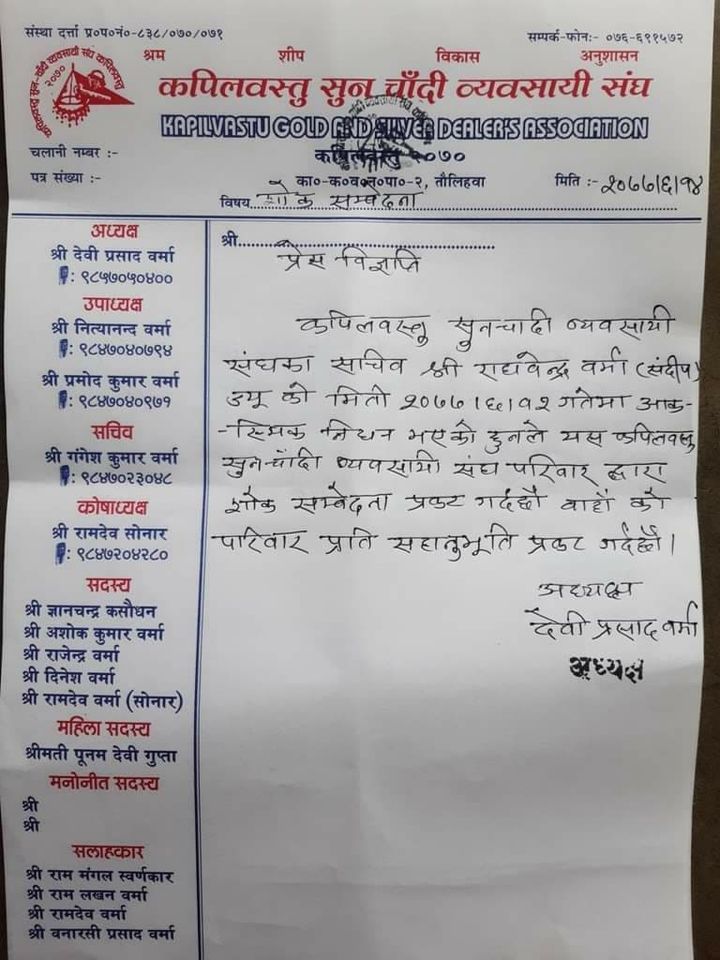 संस्था दर्ता प्र०प०नं०-८३८/०७०/०७१
सम्पर्क-फोन:- ०७६-६९१५७२
श्रम शीप विकास अनुशासन
कपिलवस्तु सुन चाँदी व्यवसायी संघ
KAPILVASTU GOLD AND SILVER DEALER'S ASSOCIATION
कपिलवस्तु २०७०
चलानी नम्बर :-
पत्र संख्या :-
का०-क०व०न०पा०-२, तौलिहवा
मिति :- २०७७।६।१४
विषय शोक सम्बेदना
अध्यक्ष
श्री देवी प्रसाद वर्मा
: ९८५७०५०४००
उपाध्यक्ष
श्री नित्यानन्द वर्मा
: ९८४७०४०७९४
श्री प्रमोद कुमार वर्मा
: ९८४७०४०९७१
सचिव
श्री गंगेश कुमार वर्मा
: ९८४७०२३०४८
कोषाध्यक्ष
श्री रामदेव सोनार
: ९८४७२०४२८०
सदस्य
श्री ज्ञानचन्द्र कसौधन
श्री अशोक कुमार वर्मा
श्री राजेन्द्र वर्मा
श्री दिनेश वर्मा
श्री रामदेव वर्मा (सोनार)
महिला सदस्य
श्रीमती पूनम देवी गुप्ता
मनोनीत सदस्य
श्री
श्री
सलाहकार
श्री राम मंगल स्वर्णकार
श्री राम लखन वर्मा
श्री रामदेव वर्मा
श्री वनारसी प्रसाद वर्मा
श्री
प्रेस विज्ञप्ति
कपिलवस्तु सुनचादी व्यवसायी
संघका सचिव श्री राघवेन्द्र वर्मा (संदीप)
ज्यू को मिती २०७७।६।१२ गतेमा आक-
-स्मिक निधन भएको हुनले यस कपिलवस्तु
सुनचाँदी व्यवसायी संघ परिवार द्वारा
शोक सम्बेदना प्रकट गर्दछौ वाहाँ को
परिवार प्रति सहानुभूति प्रकट गर्दछौ।
अध्यक्ष
देवी प्रसाद वर्मा
अध्यक्ष